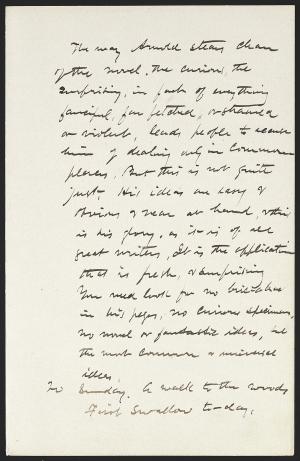 The way Arnold steers clear
of the novel, the curious, the
surprising, in fact of everything
fanciful, far fetched, or strained
or violent, leads people to accuse
him of dealing only in common
places. But this is not quite
just. His ideas are easy &
obvious & near at hand, & this
is his glory, as it is of all
great writers, It is the application
that is fresh, & surprising
You need look for no
in his pages, no curious specimens,
no novel or fantastic ideas, but
the most common & universal
ideas.
Sunday. A walk to the woods
First Swallow to-day.